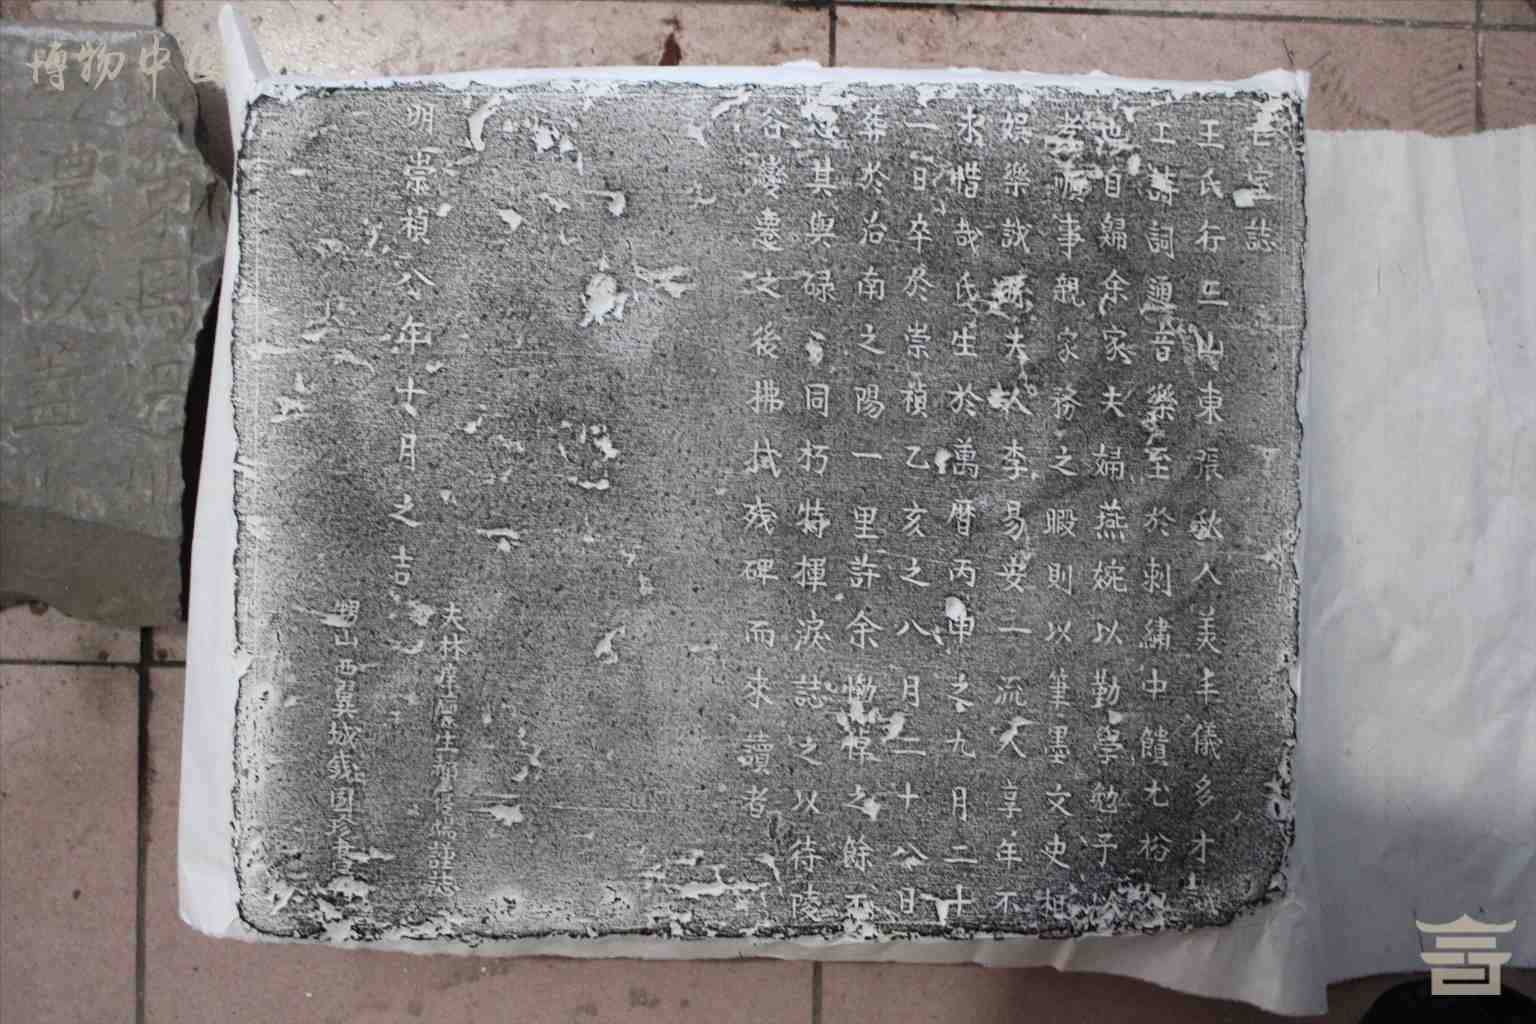 亡室誌
王氏行二山東張秋人美丰儀多才
工詩詞通音樂至於刺繡中饋尤裕
也自歸余家夫婦燕婉以勤學勉予
孝順事親家務之暇則以筆墨文史相
娛樂誠女夫人李易安一流人享年不
永惜哉氏生於萬曆丙申之九月二十
一日卒於崇禎乙亥之八月二十八日
葬於治南之陽一里許余慟悼之餘不
忍其與碌碌同朽特揮淚誌之以待陵
谷變遷之後拂拭殘碑而來讀者
明崇禎八年十月之吉
夫林庠廩生郝 儒謹誌
明山西翼城錢國珍書
博物中國
農以